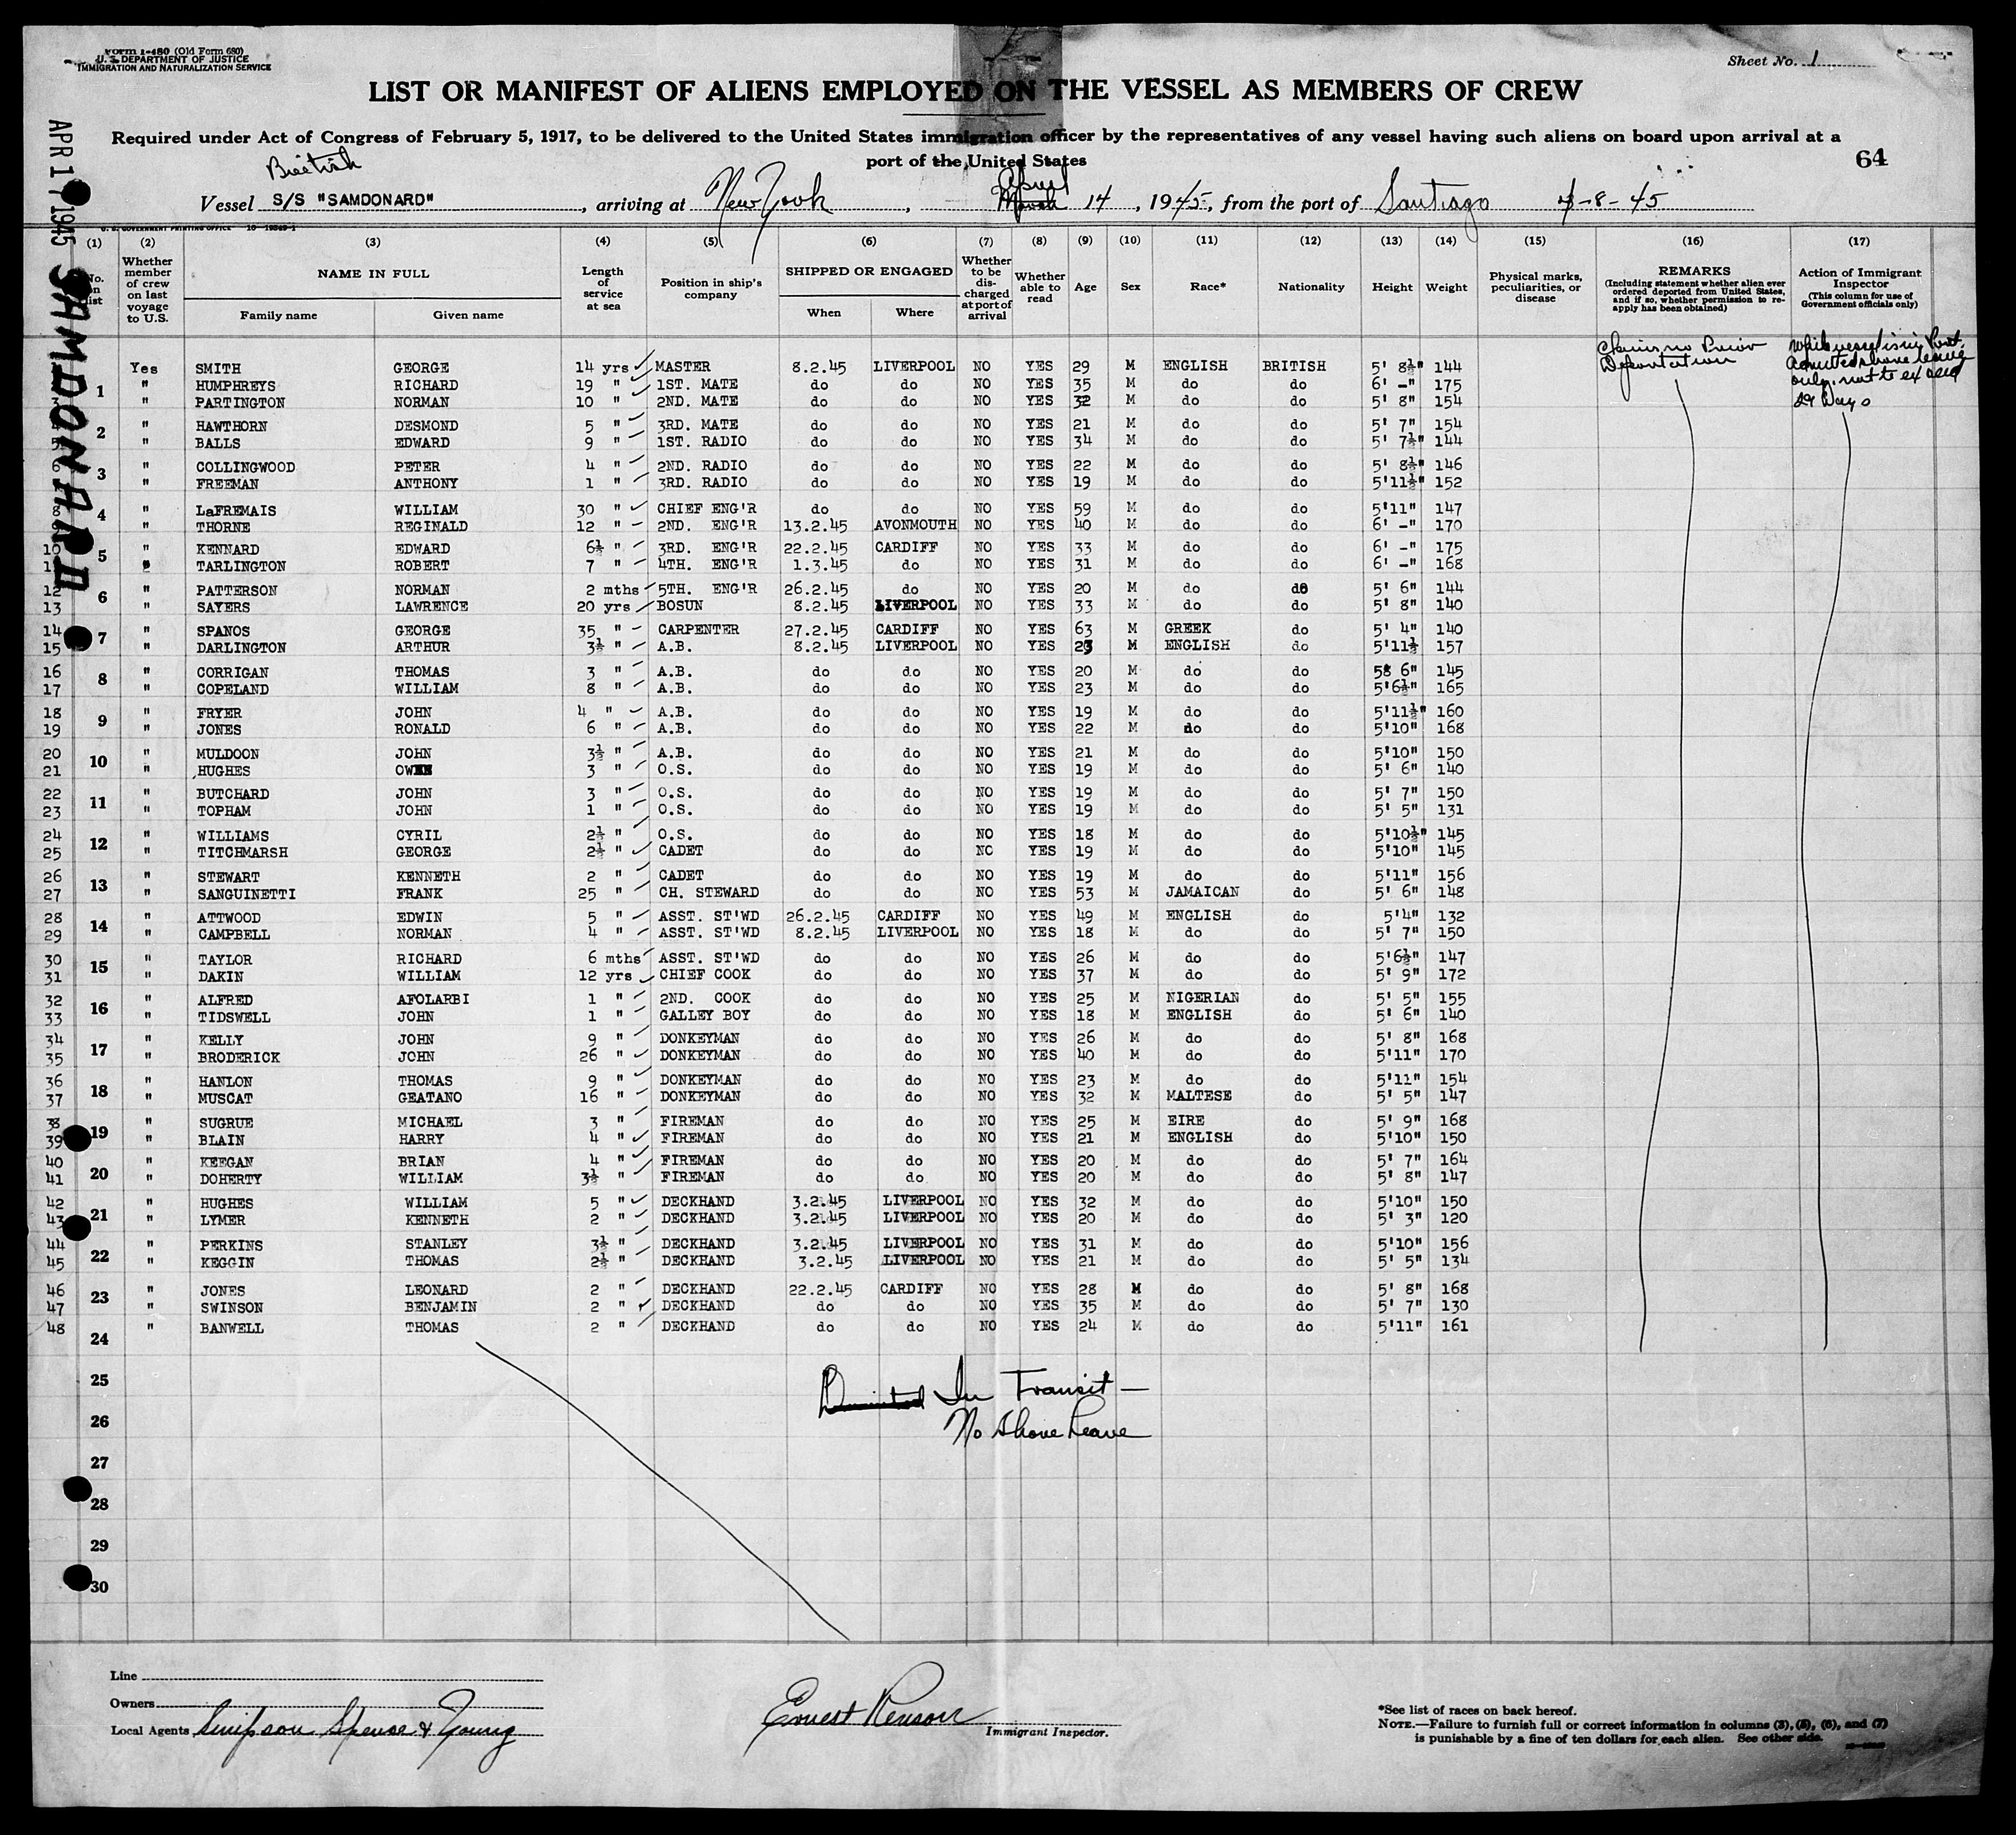 Form I-480 (Old Form 680)
U. S. DEPARTMENT OF JUSTICE
IMMIGRATION AND NATURALIZATION SERVICE
Sheet No. 1
LIST OR MANIFEST OF ALIENS EMPLOYED ON THE VESSEL AS MEMBERS OF CREW
Required under Act of Congress of February 5, 1917, to be delivered to the United States immigration officer by the representatives of any vessel having such aliens on board upon arrival at a
port of the United States
64
APR 17 1945 SAMDONARD
British
Vessel S/S "SAMDONARD", arriving at New York, March April 14, 1945, from the port of Santiago 4-8-45
U. S. GOVERNMENT PRINTING OFFICE
(1) (2) (3) (4) (5) (6) (7) (8) (9) (10) (11) (12) (13) (14) (15) (16) (17)
No. on list Whether member of crew on last voyage to U.S. NAME IN FULL Family name Given name Length of service at sea Position in ship's company SHIPPED OR ENGAGED When Where Whether to be discharged at port of arrival Whether able to read Age Sex Race* Nationality Height Weight Physical marks, peculiarities, or disease REMARKS (Including statement whether alien ever ordered deported from United States, and if so, whether permission to reapply has been obtained) Action of Immigrant Inspector (This column for use of Government officials only)
Claims no Prior Deportation
While vessel is in Port. Admitted shore leave only. not to exceed 29 Days
Yes SMITH GEORGE 14 yrs MASTER 8.2.45 LIVERPOOL NO YES 29 M ENGLISH BRITISH 5' 8½" 144
1 " HUMPHREYS RICHARD 19 " 1ST. MATE do do NO YES 35 M do do 6' -" 175
3 " PARTINGTON NORMAN 10 " 2ND. MATE do do NO YES 32 M do do 5' 8" 154
2 " HAWTHORN DESMOND 5 " 3RD. MATE do do NO YES 21 M do do 5' 7" 154
5 " BALLS EDWARD 9 " 1ST. RADIO do do NO YES 34 M do do 5' 7½" 144
6 3 " COLLINGWOOD PETER 4 " 2ND. RADIO do do NO YES 22 M do do 5' 8½" 146
" FREEMAN ANTHONY 1 " 3RD. RADIO do do NO YES 19 M do do 5'11½" 152
8 4 " LaFREMAIS WILLIAM 30 " CHIEF ENG'R do do NO YES 59 M do do 5'11" 147
" THORNE REGINALD 12 " 2ND. ENG'R 13.2.45 AVONMOUTH NO YES 40 M do do 6' -" 170
10 5 " KENNARD EDWARD 6½ " 3RD. ENG'R 22.2.45 CARDIFF NO YES 33 M do do 6' -" 175
11 " TARLINGTON ROBERT 7 " 4TH. ENG'R 1.3.45 do NO YES 31 M do do 6' -" 168
12 6 " PATTERSON NORMAN 2 mths 5TH. ENG'R 26.2.45 do NO YES 20 M do do 5' 6" 144
13 " SAYERS LAWRENCE 20 yrs BOSUN 8.2.45 LIVERPOOL NO YES 33 M do do 5' 8" 140
14 7 " SPANOS GEORGE 35 " CARPENTER 27.2.45 CARDIFF NO YES 63 M GREEK do 5' 4" 140
15 " DARLINGTON ARTHUR 3½ " A.B. 8.2.45 LIVERPOOL NO YES 23 M ENGLISH do 5'11½ 157
16 8 " CORRIGAN THOMAS 3 " A.B. do do NO YES 20 M do do 58 6" 145
17 " COPELAND WILLIAM 8 " A.B. do do NO YES 23 M do do 5'6½" 165
18 9 " FRYER JOHN 4 " A.B. do do NO YES 19 M do do 5'11½" 160
19 " JONES RONALD 6 " A.B. do do NO YES 22 M do do 5'10" 168
20 10 " MULDOON JOHN 3½ " A.B. do do NO YES 21 M do do 5'10" 150
21 " HUGHES OWEN 3 " O.S. do do NO YES 19 M do do 5' 6" 140
22 11 " BUTCHARD JOHN 3 " O.S. do do NO YES 19 M do do 5' 7" 150
23 " TOPHAM JOHN 1 " O.S. do do NO YES 19 M do do 5' 5" 131
24 12 " WILLIAMS CYRIL 2½ " O.S. do do NO YES 18 M do do 5'10½" 145
25 " TITCHMARSH GEORGE 2½ " CADET do do NO YES 19 M do do 5'10" 145
26 13 " STEWART KENNETH 2 " CADET do do NO YES 19 M do do 5'11" 156
27 " SANGUINETTI FRANK 25 " CH. STEWARD do do NO YES 53 M JAMAICAN do 5' 6" 148
28 14 " ATTWOOD EDWIN 5 " ASST. ST'WD 26.2.45 CARDIFF NO YES 49 M ENGLISH do 5'4" 132
29 " CAMPBELL NORMAN 4 " ASST. ST'WD 8.2.45 LIVERPOOL NO YES 18 M do do 5' 7" 150
30 15 " TAYLOR RICHARD 6 mths ASST. ST'WD do do NO YES 26 M do do 5'6½" 147
31 " DAKIN WILLIAM 12 yrs CHIEF COOK do do NO YES 37 M do do 5' 9" 172
32 16 " ALFRED AFOLARBI 1 " 2ND. COOK do do NO YES 25 M NIGERIAN do 5' 5" 155
33 " TIDSWELL JOHN 1 " GALLEY BOY do do NO YES 18 M ENGLISH do 5' 6" 140
34 17 " KELLY JOHN 9 " DONKEYMAN do do NO YES 26 M do do 5' 8" 168
35 " BRODERICK JOHN 26 " DONKEYMAN do do NO YES 40 M do do 5'11" 170
36 18 " HANLON THOMAS 9 " DONKEYMAN do do NO YES 23 M do do 5'11" 154
37 " MUSCAT GEATANO 16 " DONKEYMAN do do NO YES 32 M MALTESE do 5' 5" 147
38 19 " SUGRUE MICHAEL 3 " FIREMAN do do NO YES 25 M EIRE do 5' 9" 168
39 " BLAIN HARRY 4 " FIREMAN do do NO YES 21 M ENGLISH do 5'10" 150
40 20 " KEEGAN BRIAN 4 " FIREMAN do do NO YES 20 M do do 5' 7" 164
41 " DOHERTY WILLIAM 3½ " FIREMAN do do NO YES 20 M do do 5' 8" 147
42 21 " HUGHES WILLIAM 5 " DECKHAND 3.2.45 LIVERPOOL NO YES 32 M do do 5'10" 150
43 " LYMER KENNETH 2 " DECKHAND 3.2.45 LIVERPOOL NO YES 20 M do do 5' 3" 120
44 22 " PERKINS STANLEY 3½ " DECKHAND 3.2.45 LIVERPOOL NO YES 31 M do do 5'10" 156
45 " KEGGIN THOMAS 2½ " DECKHAND 3.2.45 LIVERPOOL NO YES 21 M do do 5' 5" 134
46 23 " JONES LEONARD 2 " DECKHAND 22.2.45 CARDIFF NO YES 28 M do do 5' 8" 168
47 " SWINSON BENJAMIN 2 " DECKHAND do do NO YES 35 M do do 5' 7" 130
48 24 " BANWELL THOMAS 2 " DECKHAND do do NO YES 24 M do do 5'11" 161
25
In Transit —
26
No Shore Leave
27
28
29
30
Line
Owners
Local Agents Simpson Spence & Young
Ernest Renson
Immigrant Inspector.
*See list of races on back hereof.
NOTE.—Failure to furnish full or correct information in columns (3), (5), (6), and (7)
is punishable by a fine of ten dollars for each alien. See other side.